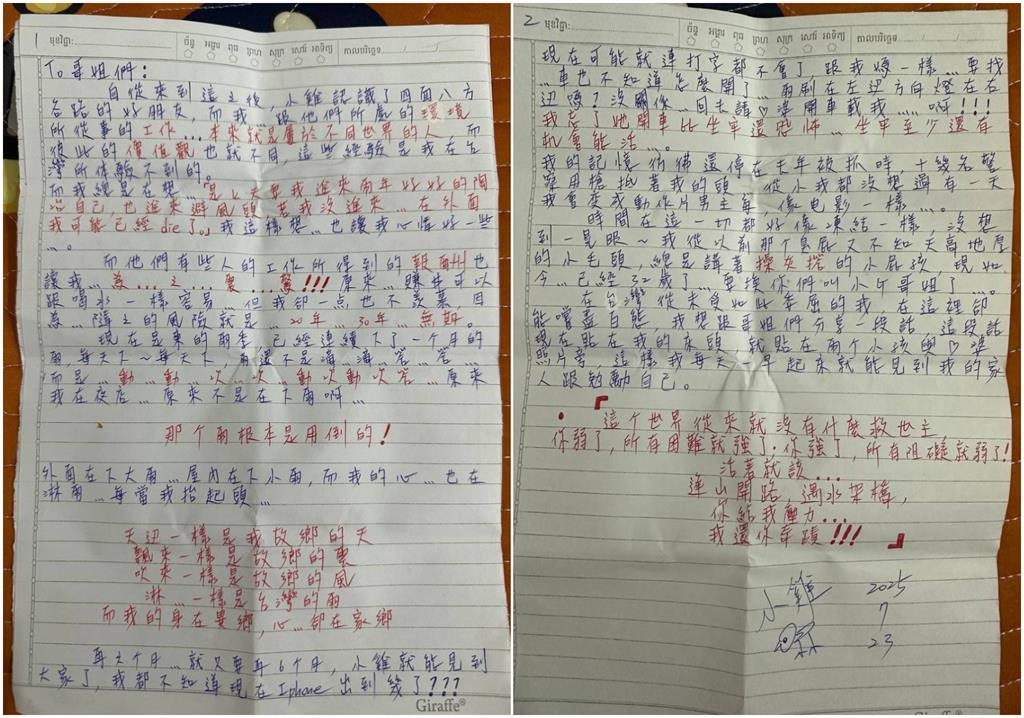 1
មុខវិជ្ជា:
ច័ន្ទ អង្គារ ពុធ ព្រហ សុក្រ សៅរ៍ អាទិត្យ
កាលបរិច្ឆេទ
To 哥姐們:
自從來到這之後,小雞認識了四面八方
各路的好朋友,而我...跟他們所處...的環境
所從事的工作...本來就是屬於不同世界的人,而
彼此的價值觀也就不同,這些經驗是我在台
灣所体驗不到的。
而我總是在想...「是上天要我進來兩年好好的陶
怨自己,也進來避風頭,若我沒進來...在外面
我可能已經die了。」我這樣想...也讓我心情好一些
...。
而他們有些人的工作所得到的報酬州也
讓我...為...之...震...驚!!!原來...賺錢可以
跟喝水一樣容易...但我卻一点也不羨慕,因
為...隨之的風險就是...20年...30年...無期。
現在是柬的雨季,已經連續下了一个月的
雨,每天下~每天下,雨還不是滴...滴...答...答...
而是...動...動...次...次...動次動次答...原來
我在夜店...原來不是在下雨啊...
那个雨根本是用倒的!
外面在下大雨...屋內在下小雨,而我的心...也在
淋雨...每當我抬起頭...
天边一樣是我故鄉的天
飄來一樣是故鄉的雲
吹來一樣是故鄉的風
淋...一樣是台灣的雨
而我的身在異鄉,心...卻在家鄉
再2个月...就又要再6个月,小雞就能見到
大家了,我都不知道現在Iphone出到幾了???
Giraffe®
2
មុខវិជ្ជា:
ច័ន្ទ អង្គារ ពុធ ព្រហ សុក្រ សៅរ៍ អាទិត្យ
កាលបរិច្ឆេទ
現在可能就連打字都不會了,跟我媽一樣...要找
...車也不知道怎麼開了...雨刷在左边方向燈在右
边嗎?沒關係...回去請♡婆開車載我......啊!!!
我忘了她開車比坐牢還恐怖...坐牢至少還有
机會能活...。
我的記憶彷彿還停在去年被抓時,十幾名警
察用槍抵著我的頭...從小我都沒想過有一天
我會變成動作片男主角,像电影一樣...。
時間在這一切都好像凍結一樣,沒想
到一晃眼~我從以前那个臭屁又不知天高地厚
的小毛頭,總是講著操女搭的小屁孩,現如
今...已經32歲了...要換你們叫小G哥姐了...。
在台灣從未受如此委屈的我,在這裡卻
能嚐盡百態,我想跟哥姐們分享一段話,這段話
現在貼在我的床頭,就貼在兩个小孩與♡婆
照片旁,這樣我每天一早起來就能見到我的家
人跟勉勵自己。
「
這个世界從來就沒有什麼救世主
你弱了,所有困難就強了.你強了,所有阻礙就弱了!
活著就該...
逢山開路,遇水架橋,
你給我壓力...
我還你奇蹟!!!
」
小雞 2025
7
23